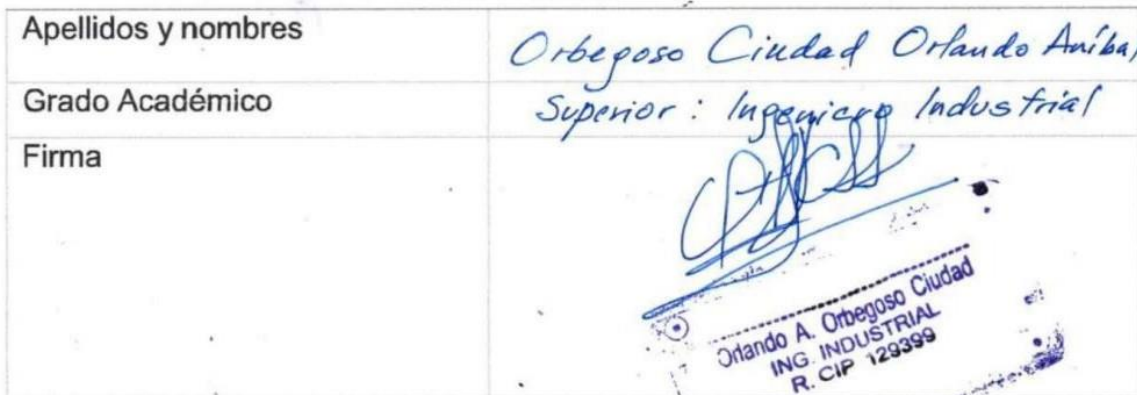 Apellidos y nombres
Orbegoso Ciudad Orlando Aníbal
Grado Académico
Superior: Ingeniero Industrial
Firma
Orlando A. Orbegoso Ciudad
ING. INDUSTRIAL
R. CIP 129399